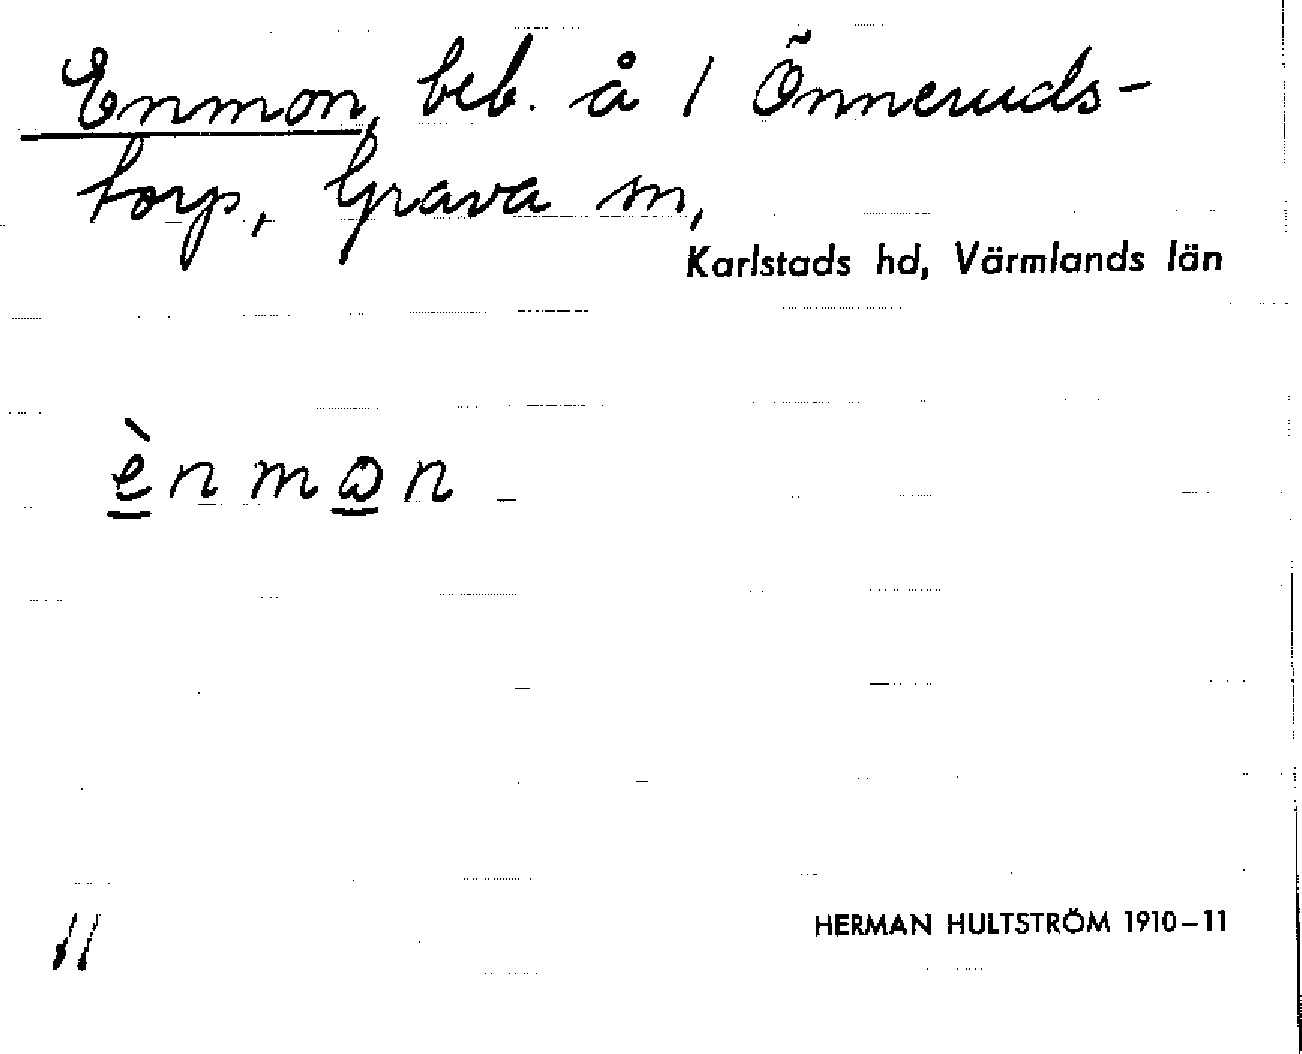 Enmon, beb. å 1 Önneruds-
torp, Grava sn,
Karlstads hd, Värmlands län
ènmɷn
11
HERMAN HULTSTRÖM 1910–11